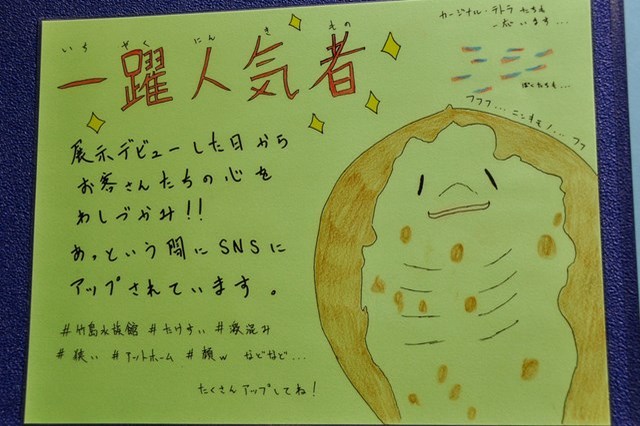 いち やく にん き もの
一躍人気者
展示デビューした日から
お客さんたちの心を
わしづかみ!!
あっという間にSNSに
アップされています。
#竹島水族館 #たけすい #激混み
#狭い #アットホーム #顔w などなど...
たくさんアップしてね!
カージナル・テトラたちも
一応います...
ぼくたちも...
フフフ...ニンキモノ...フフ